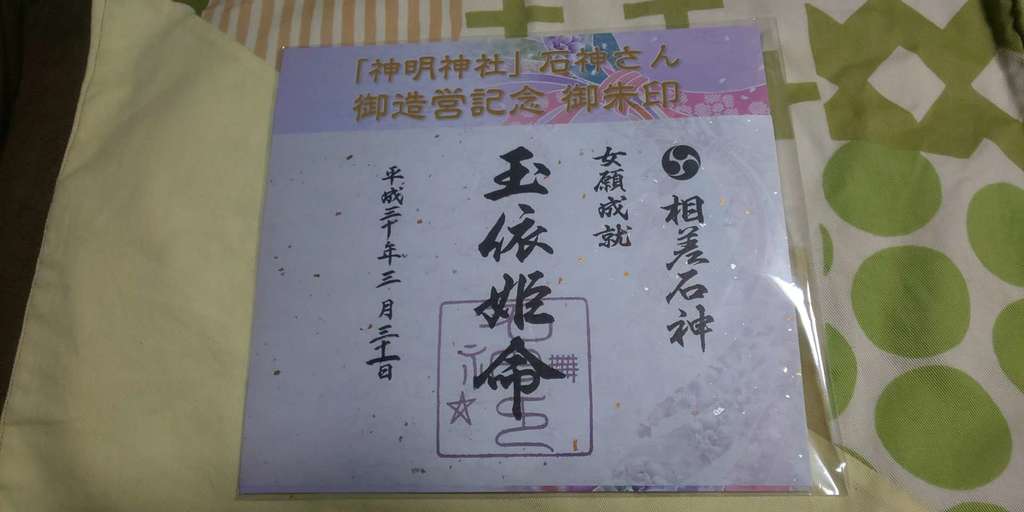 「神明神社」石神さん
御造営記念 御朱印
相差石神
女願成就
玉依姫命
平成三十年三月三十一日